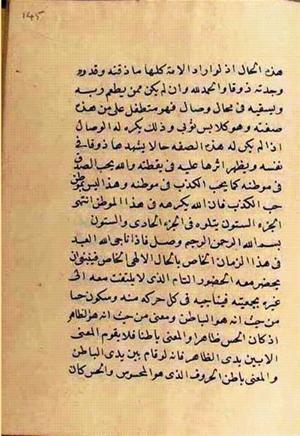 ١٤٥
هذه الحال اذ لو اراد الامة كلها ما ذقته وقد ورد
وجدته ذوقا والحمد لله وان لم يكن ممن يطعم ربه
ويسقيه في محال وصال فهو متطفل على من هذه
صفته وهو كلابس ثوبي وذلك يكره له الوصال
اذا لم يكن له هذه الصفه حالا يشهدها ذوقا في
نفسه ويظهر اثرها عليه في يقظته والله يحب الصدق
في موطنه كما يحب الكذب في موطنه وهذا ليس موطن
حب الكذب فان الله يكرهه في هذا الموطن انتهى
الجزء الستون يتلوه في الجزء الحادي والستون
بسم الله الرحمن الرحيم وصل فاذا ناجى الله العبد
في هذا الزمان الخاص بالحال الالهي الخاص فينبغي ان
يحضر معه الحضور التام الذي لا يلتفت معه الى
غيره بجمعيته فيناجيه في كل حركة منه وسكون حسا
من حيث انه هو الباطن ومعنى من حيث انه هو الظاهر
اذ كان الحس ظاهرا والمعنى باطنا فلا يقوم المعنى
الا بين يدي الظاهر فانه لو قام بين يدي الباطن
والمعنى باطن الحروف الذي هو المحسوس والحس كان